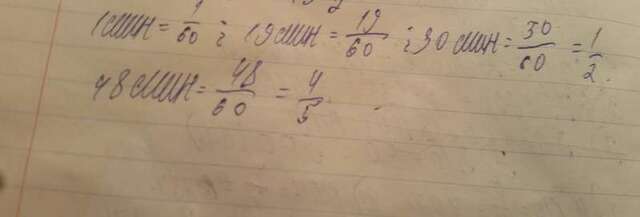 1 мин = 1/60 ; 19 мин = 19/60 ; 30 мин = 30/60 = 1/2
48 мин = 48/60 = 4/5